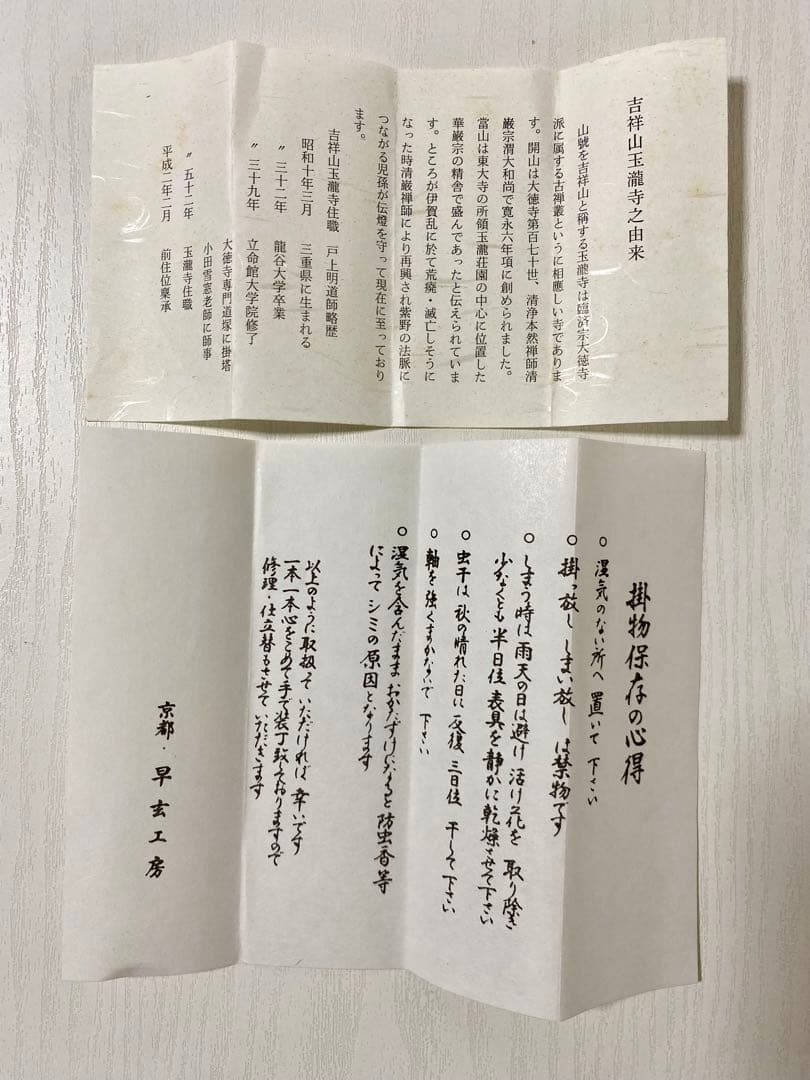 吉祥山玉瀧寺之由来
山號を吉祥山と稱する玉瀧寺は臨済宗大徳寺
派に属する古禅叢というに相應しい寺でありま
す。開山は大徳寺第百七十世、清浄本然禅師清
巌宗渭大和尚で寛永六年項に創められました。
當山は東大寺の所領玉瀧荘園の中心に位置した
華厳宗の精舎で盛んであったと伝えられていま
す。ところが伊賀乱に於て荒廃・滅亡しそうに
なった時清巌禅師により再興され紫野の法脈に
つながる児孫が伝燈を守って現在に至っており
ます。
吉祥山玉瀧寺住職 戸上明道師略歴
昭和十年三月 三重県に生まれる
〃 三十二年 龍谷大学卒業
〃 三十九年 立命館大学院修了
大徳寺専門道場に掛塔
小田雪窓老師に師事
〃 五十二年 玉瀧寺住職
平成二年二月 前住位稟承
掛物保存の心得
○ 湿気のない所へ置いて下さい
○ 掛っ放ししまい放しは禁物です
○ しまう時は雨天の日は避け活け花を取り除き
少なくとも半日位表具を静かに乾燥させて下さい
○ 虫干は秋の晴れた日に反復三日位干して下さい
○ 軸を強くまかないで下さい
○ 湿気を含んだままおかたずけになると防虫香等
によってシミの原因となります
以上のように取扱っていただければ幸いです
一本一本心をこめて手で装丁致しておりますので
修理・仕立替もさせていただきます
京都・早玄工房